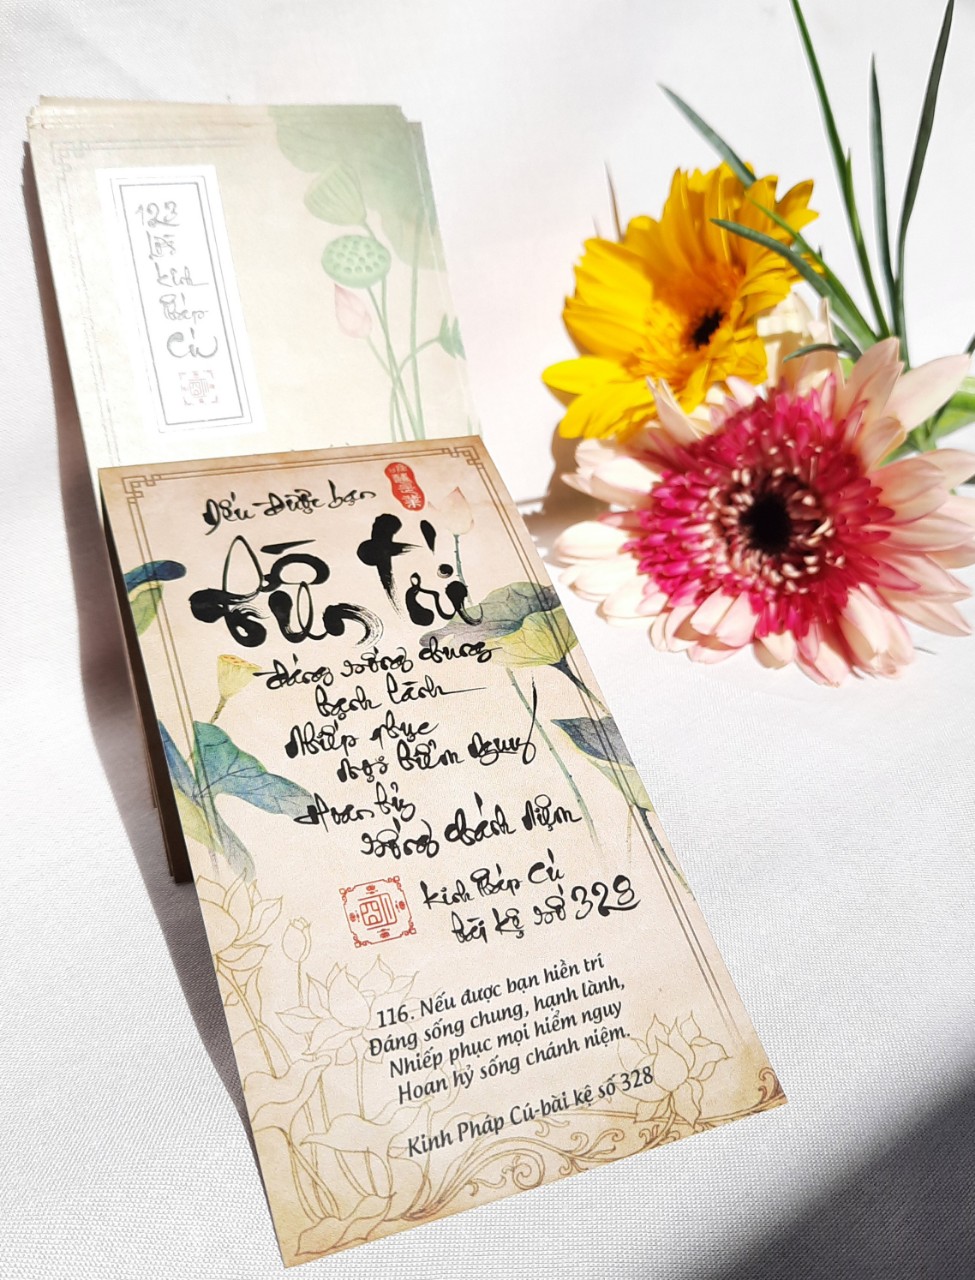 123
Lời
Kinh
Pháp
Cú
Nếu được bạn
Hiền Trí
Đáng sống chung
hạnh lành
Nhiếp phục
mọi hiểm nguy
Hoan hỷ
sống chánh niệm
Kinh Pháp Cú
bài kệ số 328
116. Nếu được bạn hiền trí
Đáng sống chung, hạnh lành,
Nhiếp phục mọi hiểm nguy
Hoan hỷ sống chánh niệm.
Kinh Pháp Cú-bài kệ số 328